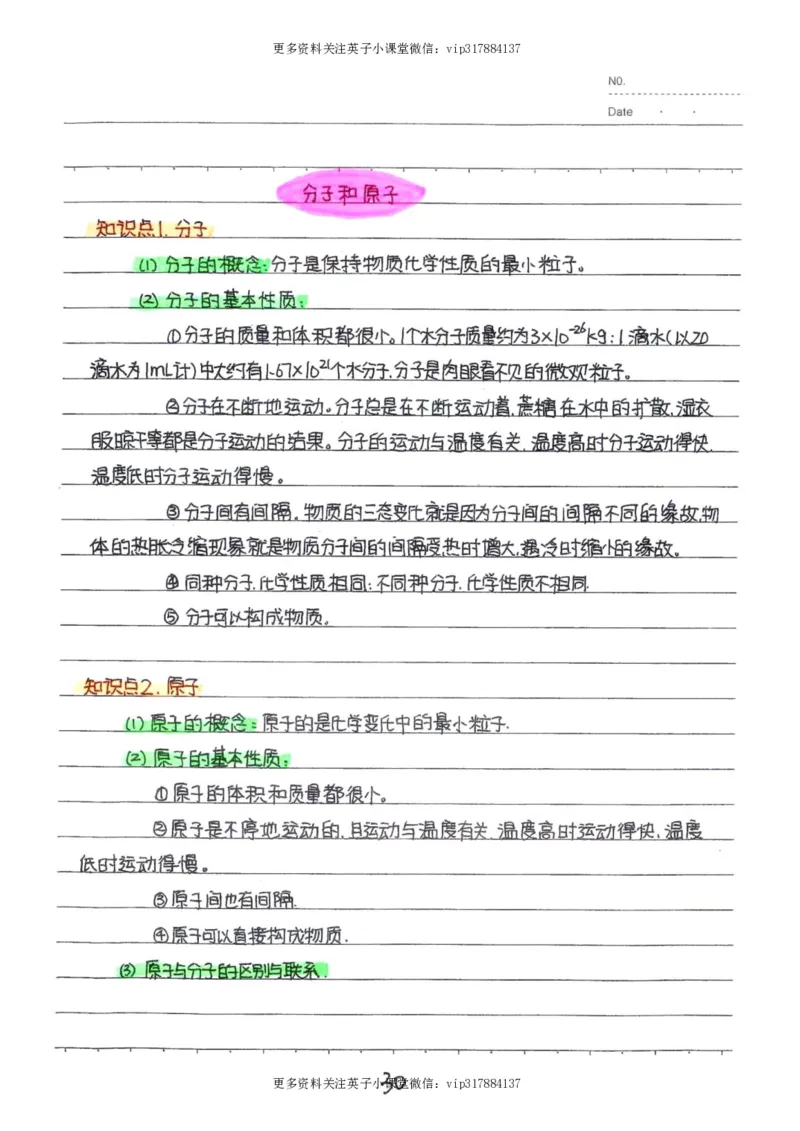 更多资料关注英子小课堂微信：vip317884137
NO.
Date
分子和原子
知识点1. 分子
(1) 分子的概念:分子是保持物质化学性质的最小粒子。
(2) 分子的基本性质:
①分子的质量和体积都很小。1个水分子质量约为3×10⁻²⁶kg；1滴水(以20
滴水为1mL计)中大约有1.67×10²¹个水分子.分子是肉眼看不见的微观粒子。
②分子在不断地运动。分子总是在不断运动着,蔗糖在水中的扩散,湿衣
服晾干等都是分子运动的结果。分子的运动与温度有关.温度高时分子运动得快.
温度低时分子运动得慢。
③分子间有间隔。物质的三态变化就是因为分子间的间隔不同的缘故,物
体的热胀冷缩现象就是物质分子间的间隔受热时增大,遇冷时缩小的缘故。
④同种分子.化学性质相同；不同种分子.化学性质不相同.
⑤分子可以构成物质。
知识点2. 原子
(1) 原子的概念:原子的是化学变化中的最小粒子.
(2) 原子的基本性质:
①原子的体积和质量都很小。
②原子是不停地运动的.且运动与温度有关.温度高时运动得快,温度
低时运动得慢。
③原子间也有间隔.
④原子可以直接构成物质.
(3) 原子与分子的区别与联系.
30
更多资料关注英子小课堂微信：vip317884137